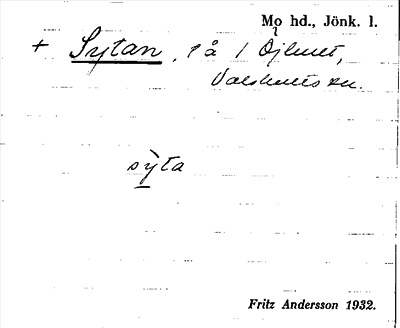 Mo hd., Jönk. l.
+ Sytan, på / Öjhult,
Valshults sn.
sỳta
Fritz Andersson 1932.